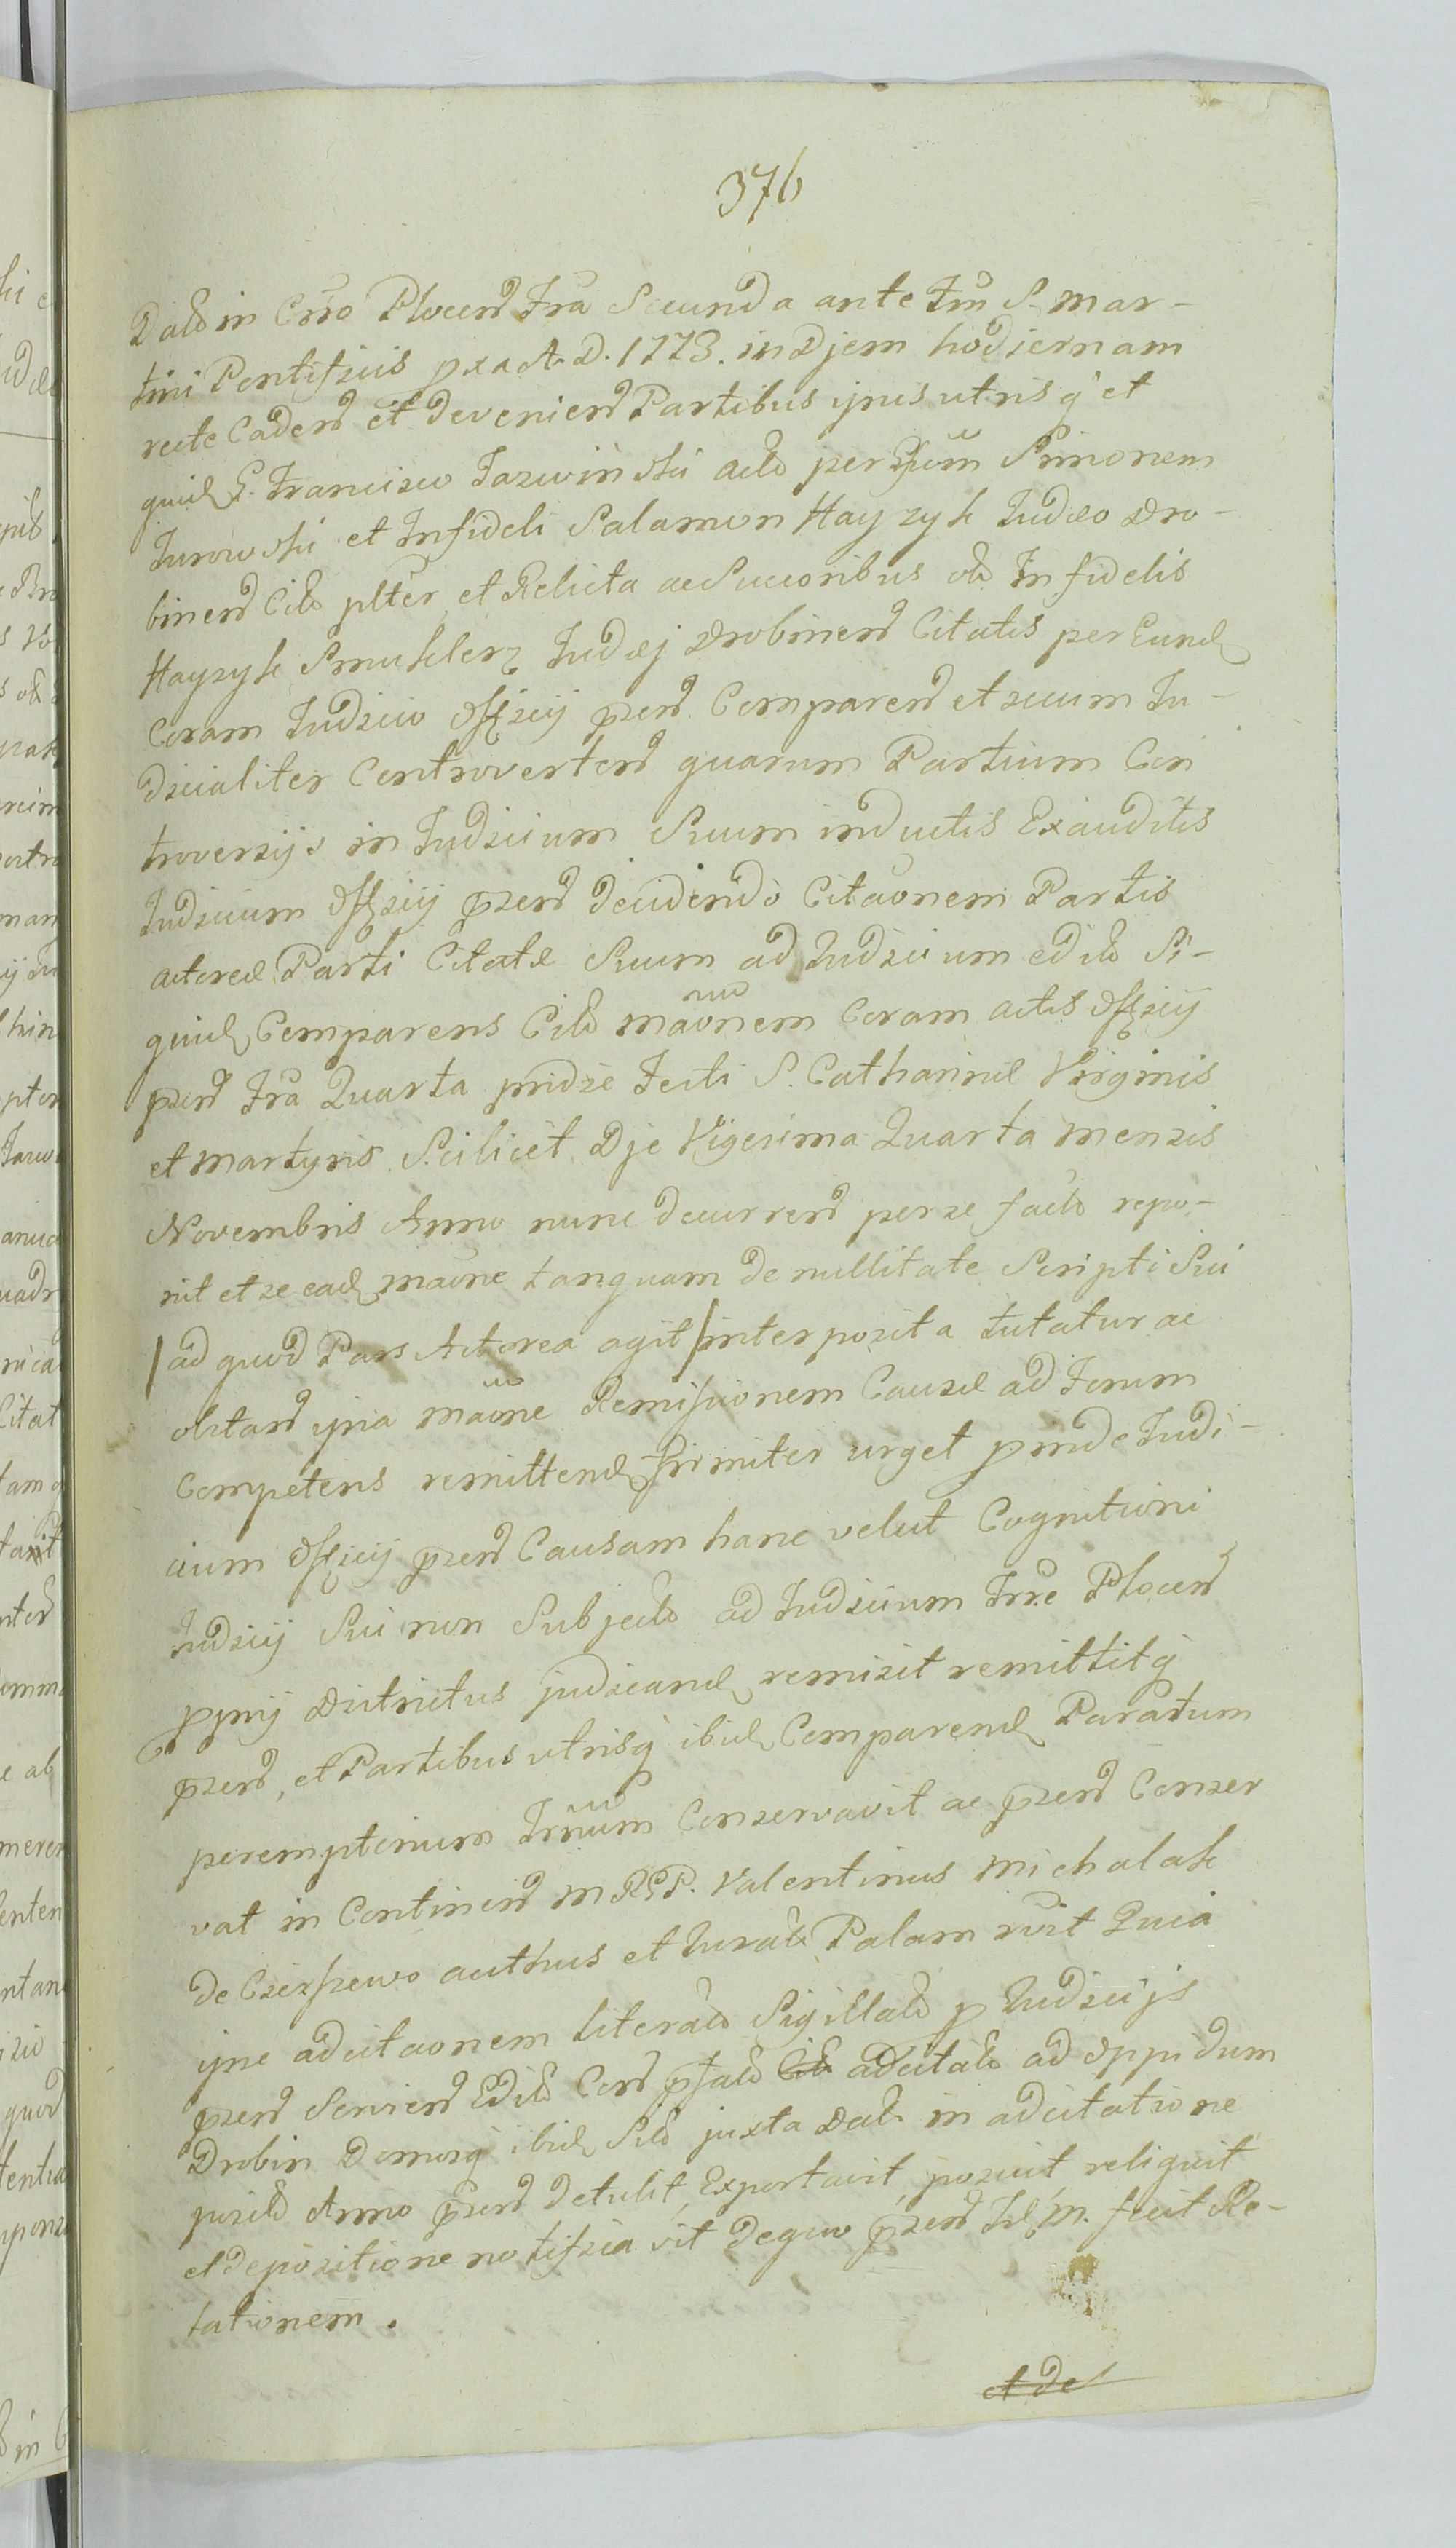 376
Dato in Crro Plocen Fria Secunda ante Fm S. Mar-
tini Pontificis pxa A. D. 1773. in Djem hodiernam
recte Caden et devenien Partibus ipsis utrisq et
quid G. Francisco Jazwinski acto per Simonem
Turowski et Infideli Salamon Hayzyk Judæo Dro-
binen Cito plter et Relicta ac Succoribus olo Infidelis
Hayzyk Smuklerz Judæj Drobinen Citatis per Eund
Coram Judicio Officij pzen Comparen et secum Ju-
dicialiter Controverten quarum Partium Con
troversijs in Judicium Suum inductis Exauditis
Judicium Officij pzen decidendo Citaonem Partis
actoreæ Parti Citatæ Suum ad Judicium edito Si-
quid Comparens Cito maonem Coram actis Officij
pzen Fria Quarta pridie Festi S. Catharinæ Virginis
et Martyris Scilicet Dje Vigesima Quarta Mensis
Novembris Anno nunc decurren per se facto repo-
nit et se ead maone tanquam de nullitate Scripti Sui
/ ad quod Pars Actorea agit / interposita tutatur ac
obstan ipsa maone Remissionem Causæ ad Forum
Competens remittend firmiter urget proinde Judi-
cium Officij pzen Causam hanc velut Cognitioni
Judicij Sui non Subjecto ad Judicium Trre Plocen
pprij Districtus judicand remisit remittitq
pzen, et Partibus utrisq ibid Comparend Paratum
peremptorium Trnum Conservavit ac pzen Conser
vat in Continen M RGP. Valentinus Michalak
de authus et Jurato Palam rvit Quia
ipse adcitaonem literato Sigillato p Judicijs
pzen Servien Edito Con pfato adcitato ad Oppidum
Drobin Domosq ibid Sito juxta Dato in adcitatione
posito Anno pzen detulit, Exportavit, posuit reliquit
et depositione notificavit dequo pzen M. fecit Re-
lationem.
et de